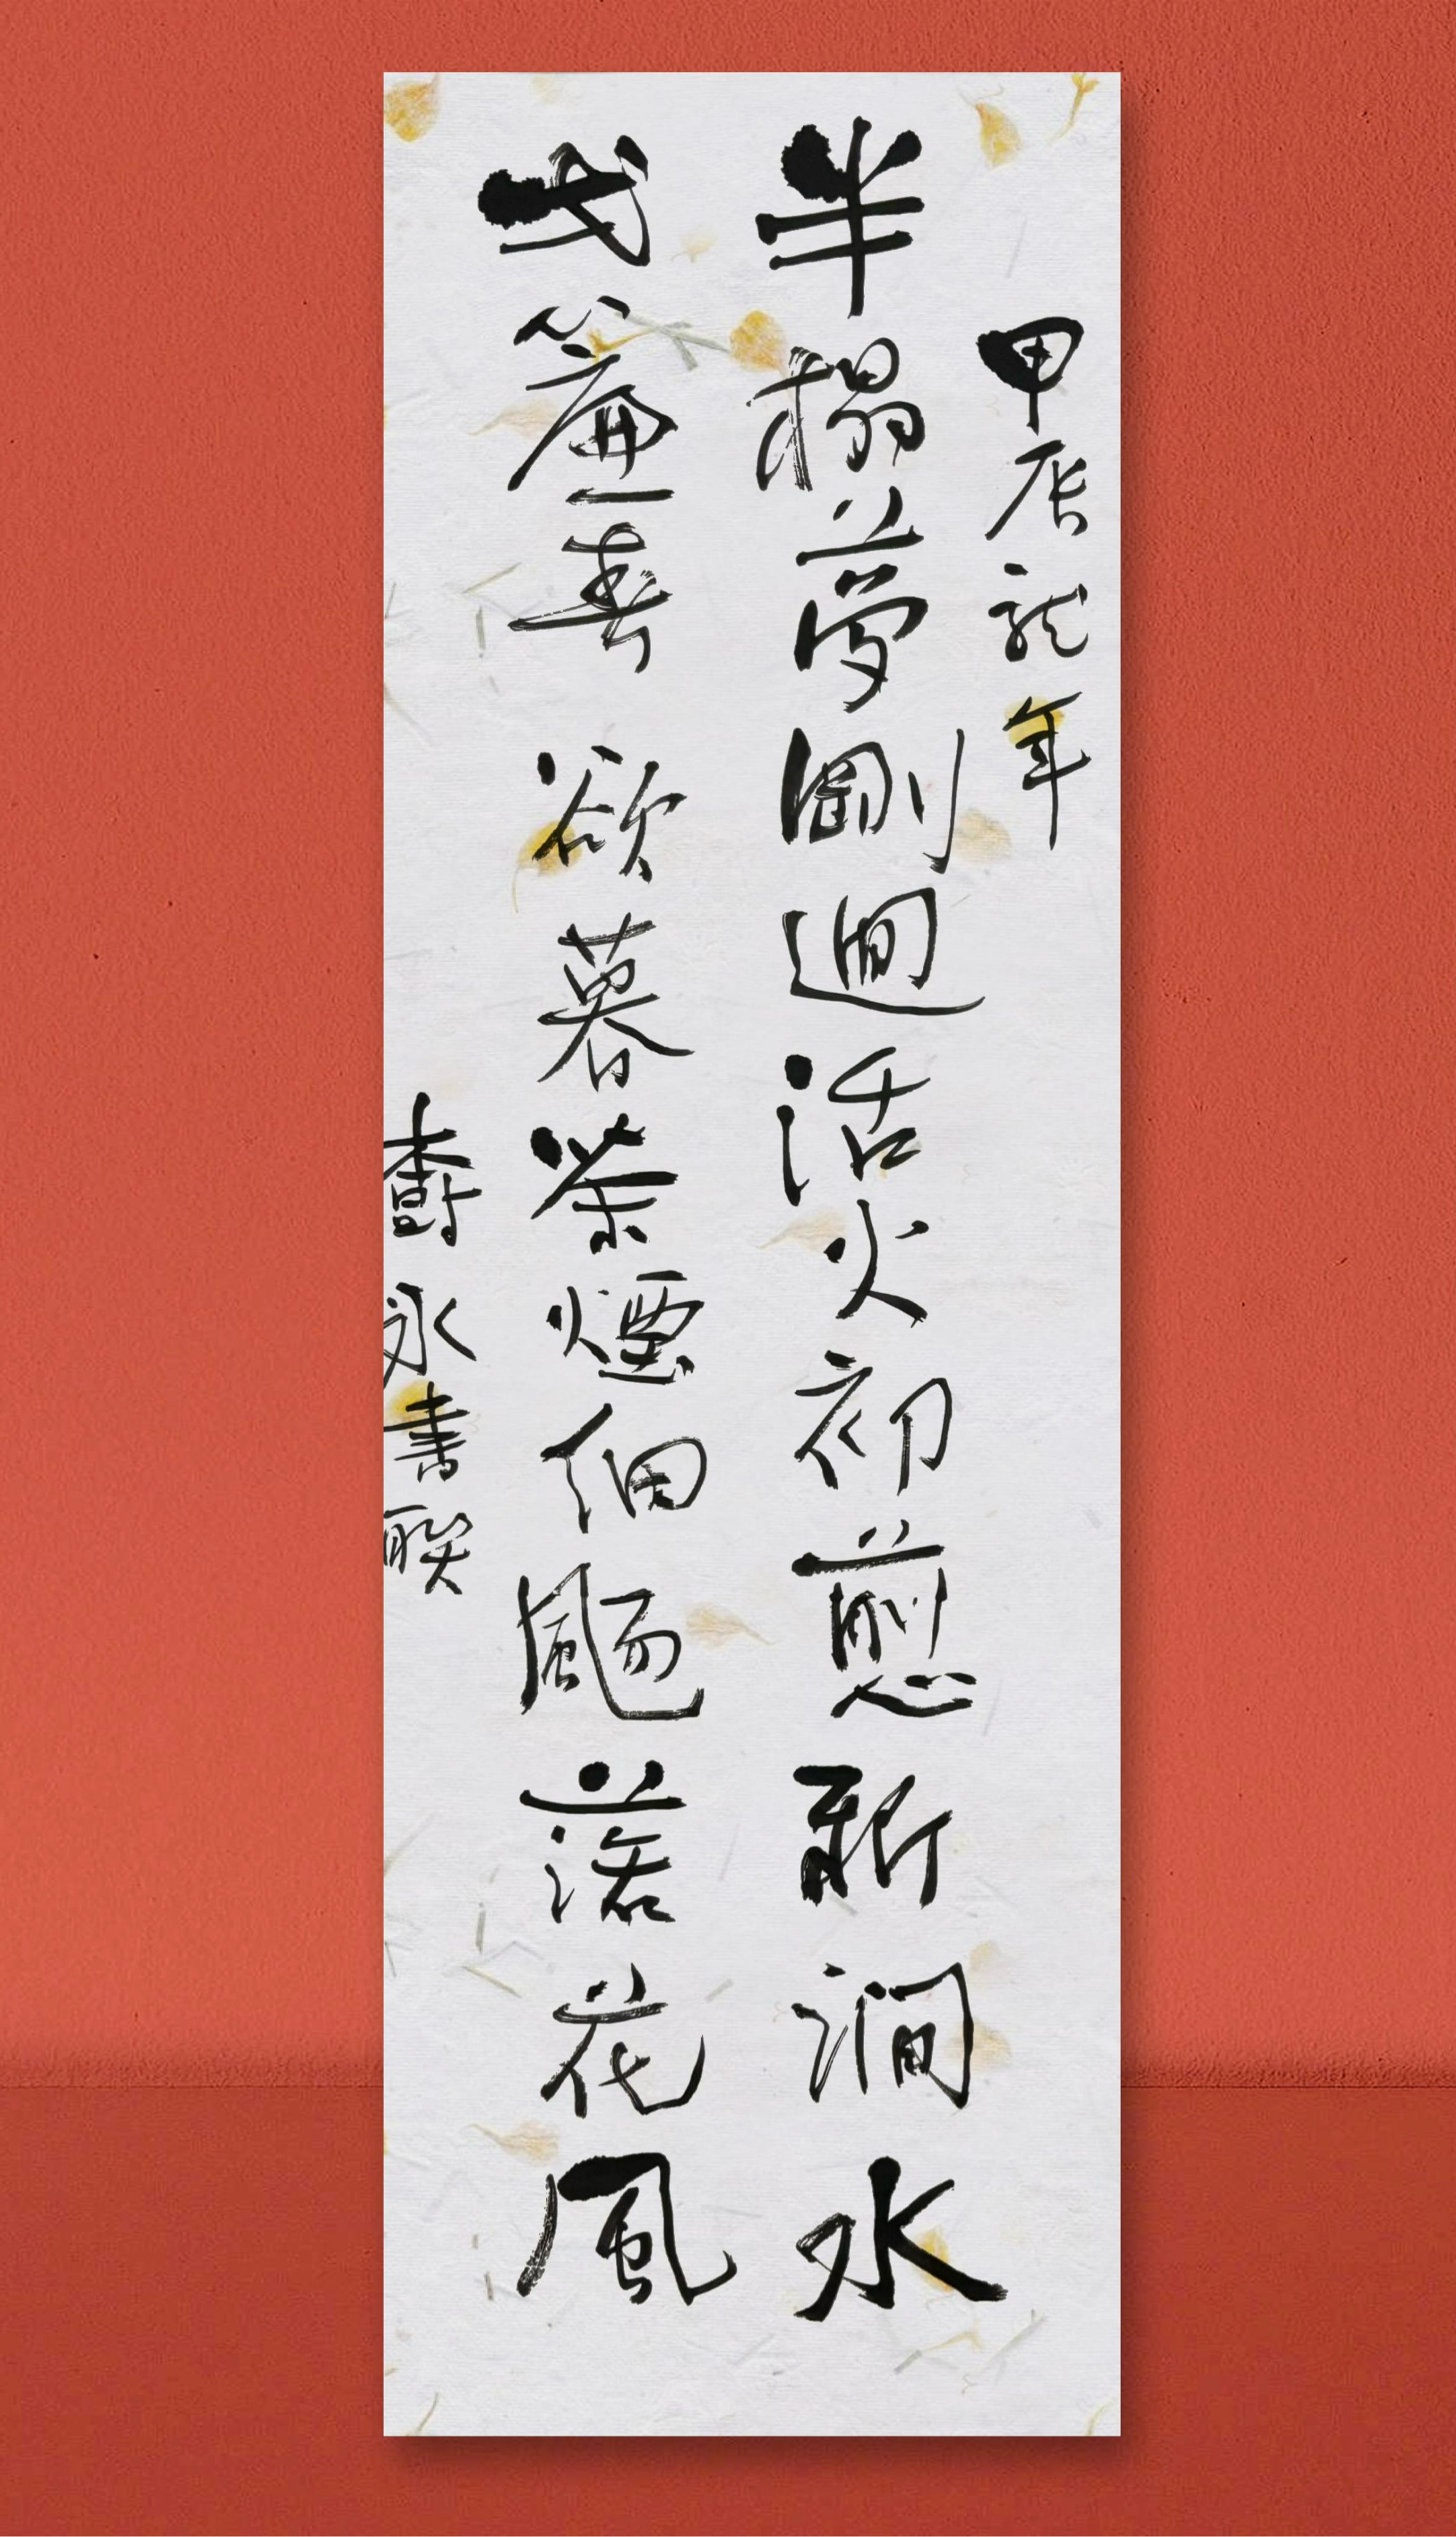 甲辰龍年
半榻夢剛迴活火初煎新澗水
弌簾春欲暮茶煙細颺落花風
樹永書聯